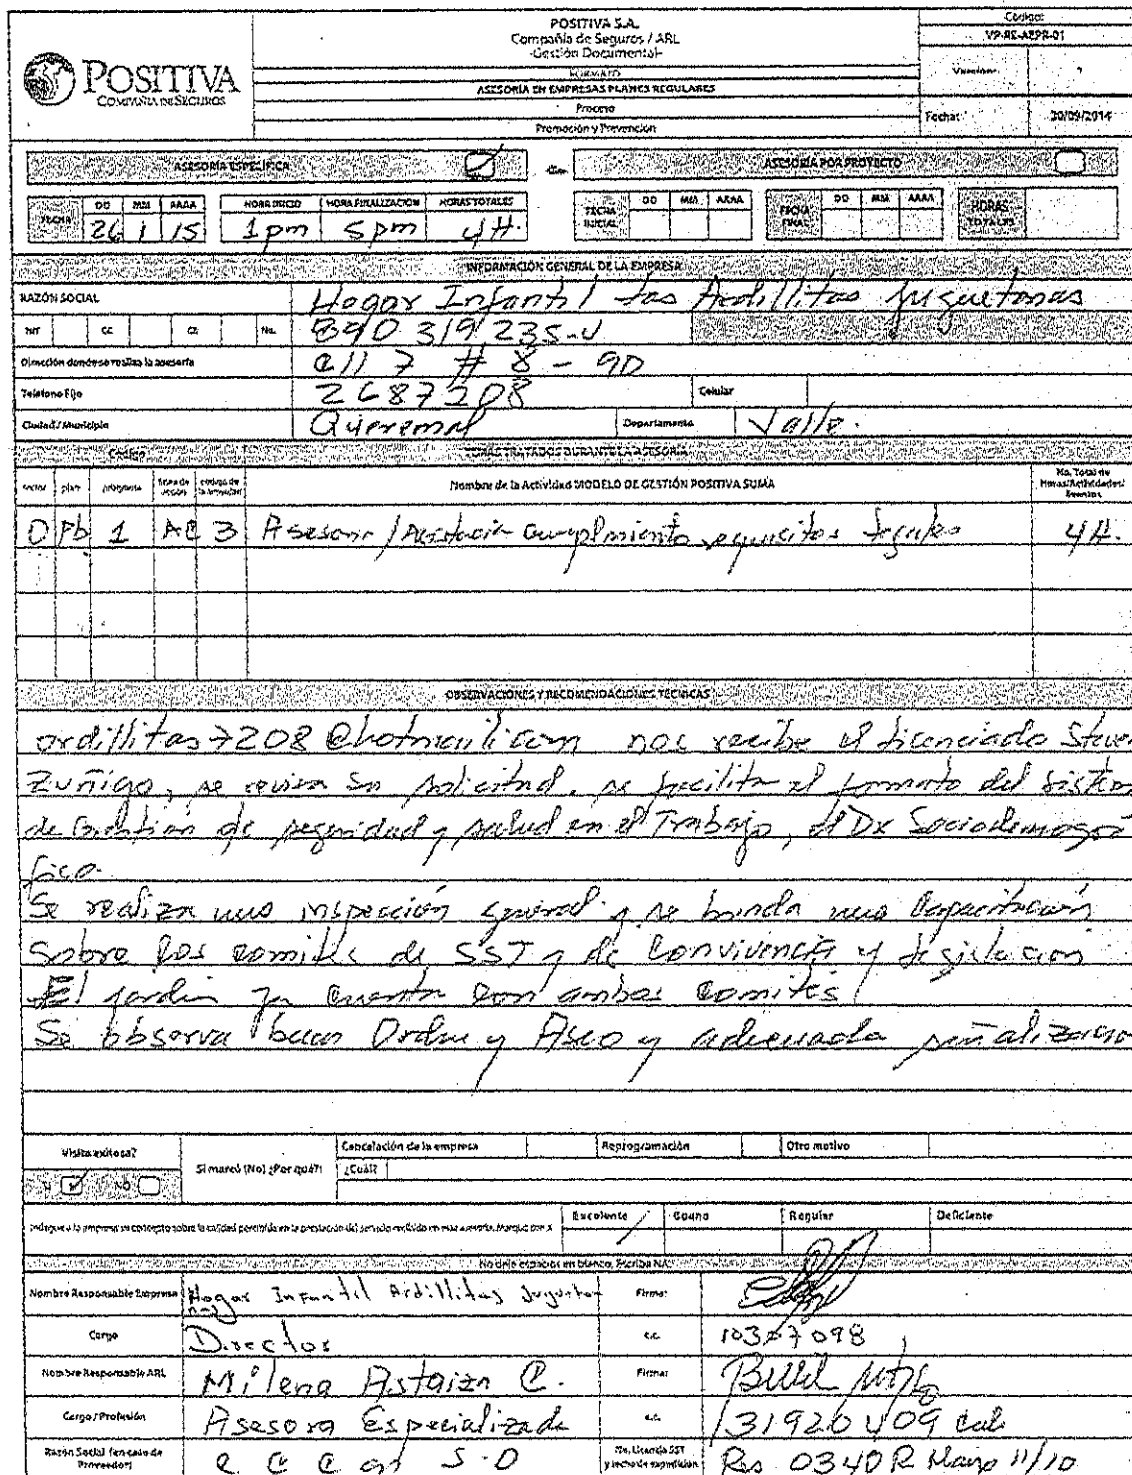 POSITIVA
COMPAÑÍA DE SEGUROS
POSITIVA S.A.
Compañía de Seguros / ARL
-Gestión Documental-
FORMATO
ASESORÍA EN EMPRESAS PLANES REGULARES
Proceso
Promoción y Prevención
Código:
VP-RE-AEPR-01
Version:
Fecha: 30/09/2014
ASESORÍA ESPECÍFICA
ASESORÍA POR PROYECTO
FECHA DD MM AAAA HORA INICIO HORA FINALIZACION HORAS TOTALES
26 1 15 1 pm 5 pm 4 H.
FECHA INICIAL DD MM AAAA FECHA FINAL DD MM AAAA HORAS TOTALES
INFORMACIÓN GENERAL DE LA EMPRESA
RAZÓN SOCIAL Hogar Infantil las Ardillitas juguetonas
NIT CC CE No. 890 319 235-
Dirección donde se realiza la asesoría Cll 7 # 8 - 90
Telefono Fijo 2687208 Celular
Ciudad / Municipio Queremal Departamento Valle.
Código TEMAS TRATADOS DURANTE LA ASESORÍA
sector plan programa línea de acción código de la actividad Nombre de la Actividad MODELO DE GESTIÓN POSITIVA SUMA No. Total de Horas/Actividades/Eventos
O Pb 1 AC 3 Asesoria / cumplimiento requisitos legales 4 H.
OBSERVACIONES Y RECOMENDACIONES TÉCNICAS
ardillitas7208@hotmail.com nos recibe el licenciado Steven
Zuñiga, se revisa su solicitud, se facilita el formato del sistema
de Gestión de seguridad y salud en el Trabajo, el Dx Sociodemográ
fico.
Se realiza una inspección general y se brinda una Capacitación
Sobre los comites de SST y de Convivencia y legislación
El jardin ya cuenta con ambos comités
Se observa buen Orden y Aseo y adecuada señalización
Visita exitosa? Si marcó (No) ¿Por qué?: Cancelación de la empresa Reprogramación Otro motivo
SI NO ¿Cuál?
Indague a la empresa su concepto sobre la calidad percibida en la prestación del servicio recibido en esta asesoría. Marque con X Excelente Bueno Regular Deficiente
No deje espacios en blanco, Escriba NA
Nombre Responsable Empresa Hogar Infantil Ardillitas Juguetonas Firma:
Cargo Director c.c. 10307098
Nombre Responsable ARL Milena Astaiza C. Firma:
Cargo / Profesión Asesora Especializada c.c. Cali
Razón Social (en caso de Proveedor) No. Licencia SST y fecha de expedición Res 0340 R Marzo 11/10